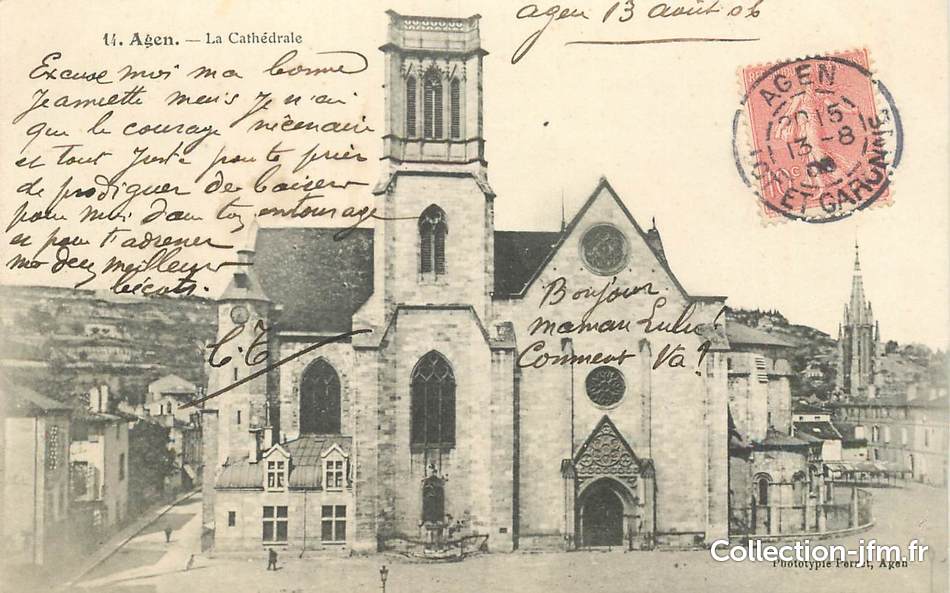 14. Agen. — La Cathédrale
agen 13 août 06
Excuse moi ma bonne
Jeannette mais Je n'ai
que le courage nécenaire
et tout Juste pour te prier
de prodiguer des baisers
pour moi dans ton entourage
et pour t'adresser
mes deux meilleurs
bécots.
Bonjour
maman Lulu!
Comment Va?
AGEN
13-8
06
LOT ET GARONNE
Collection-jfm.fr
Phototypie Perret, Agen